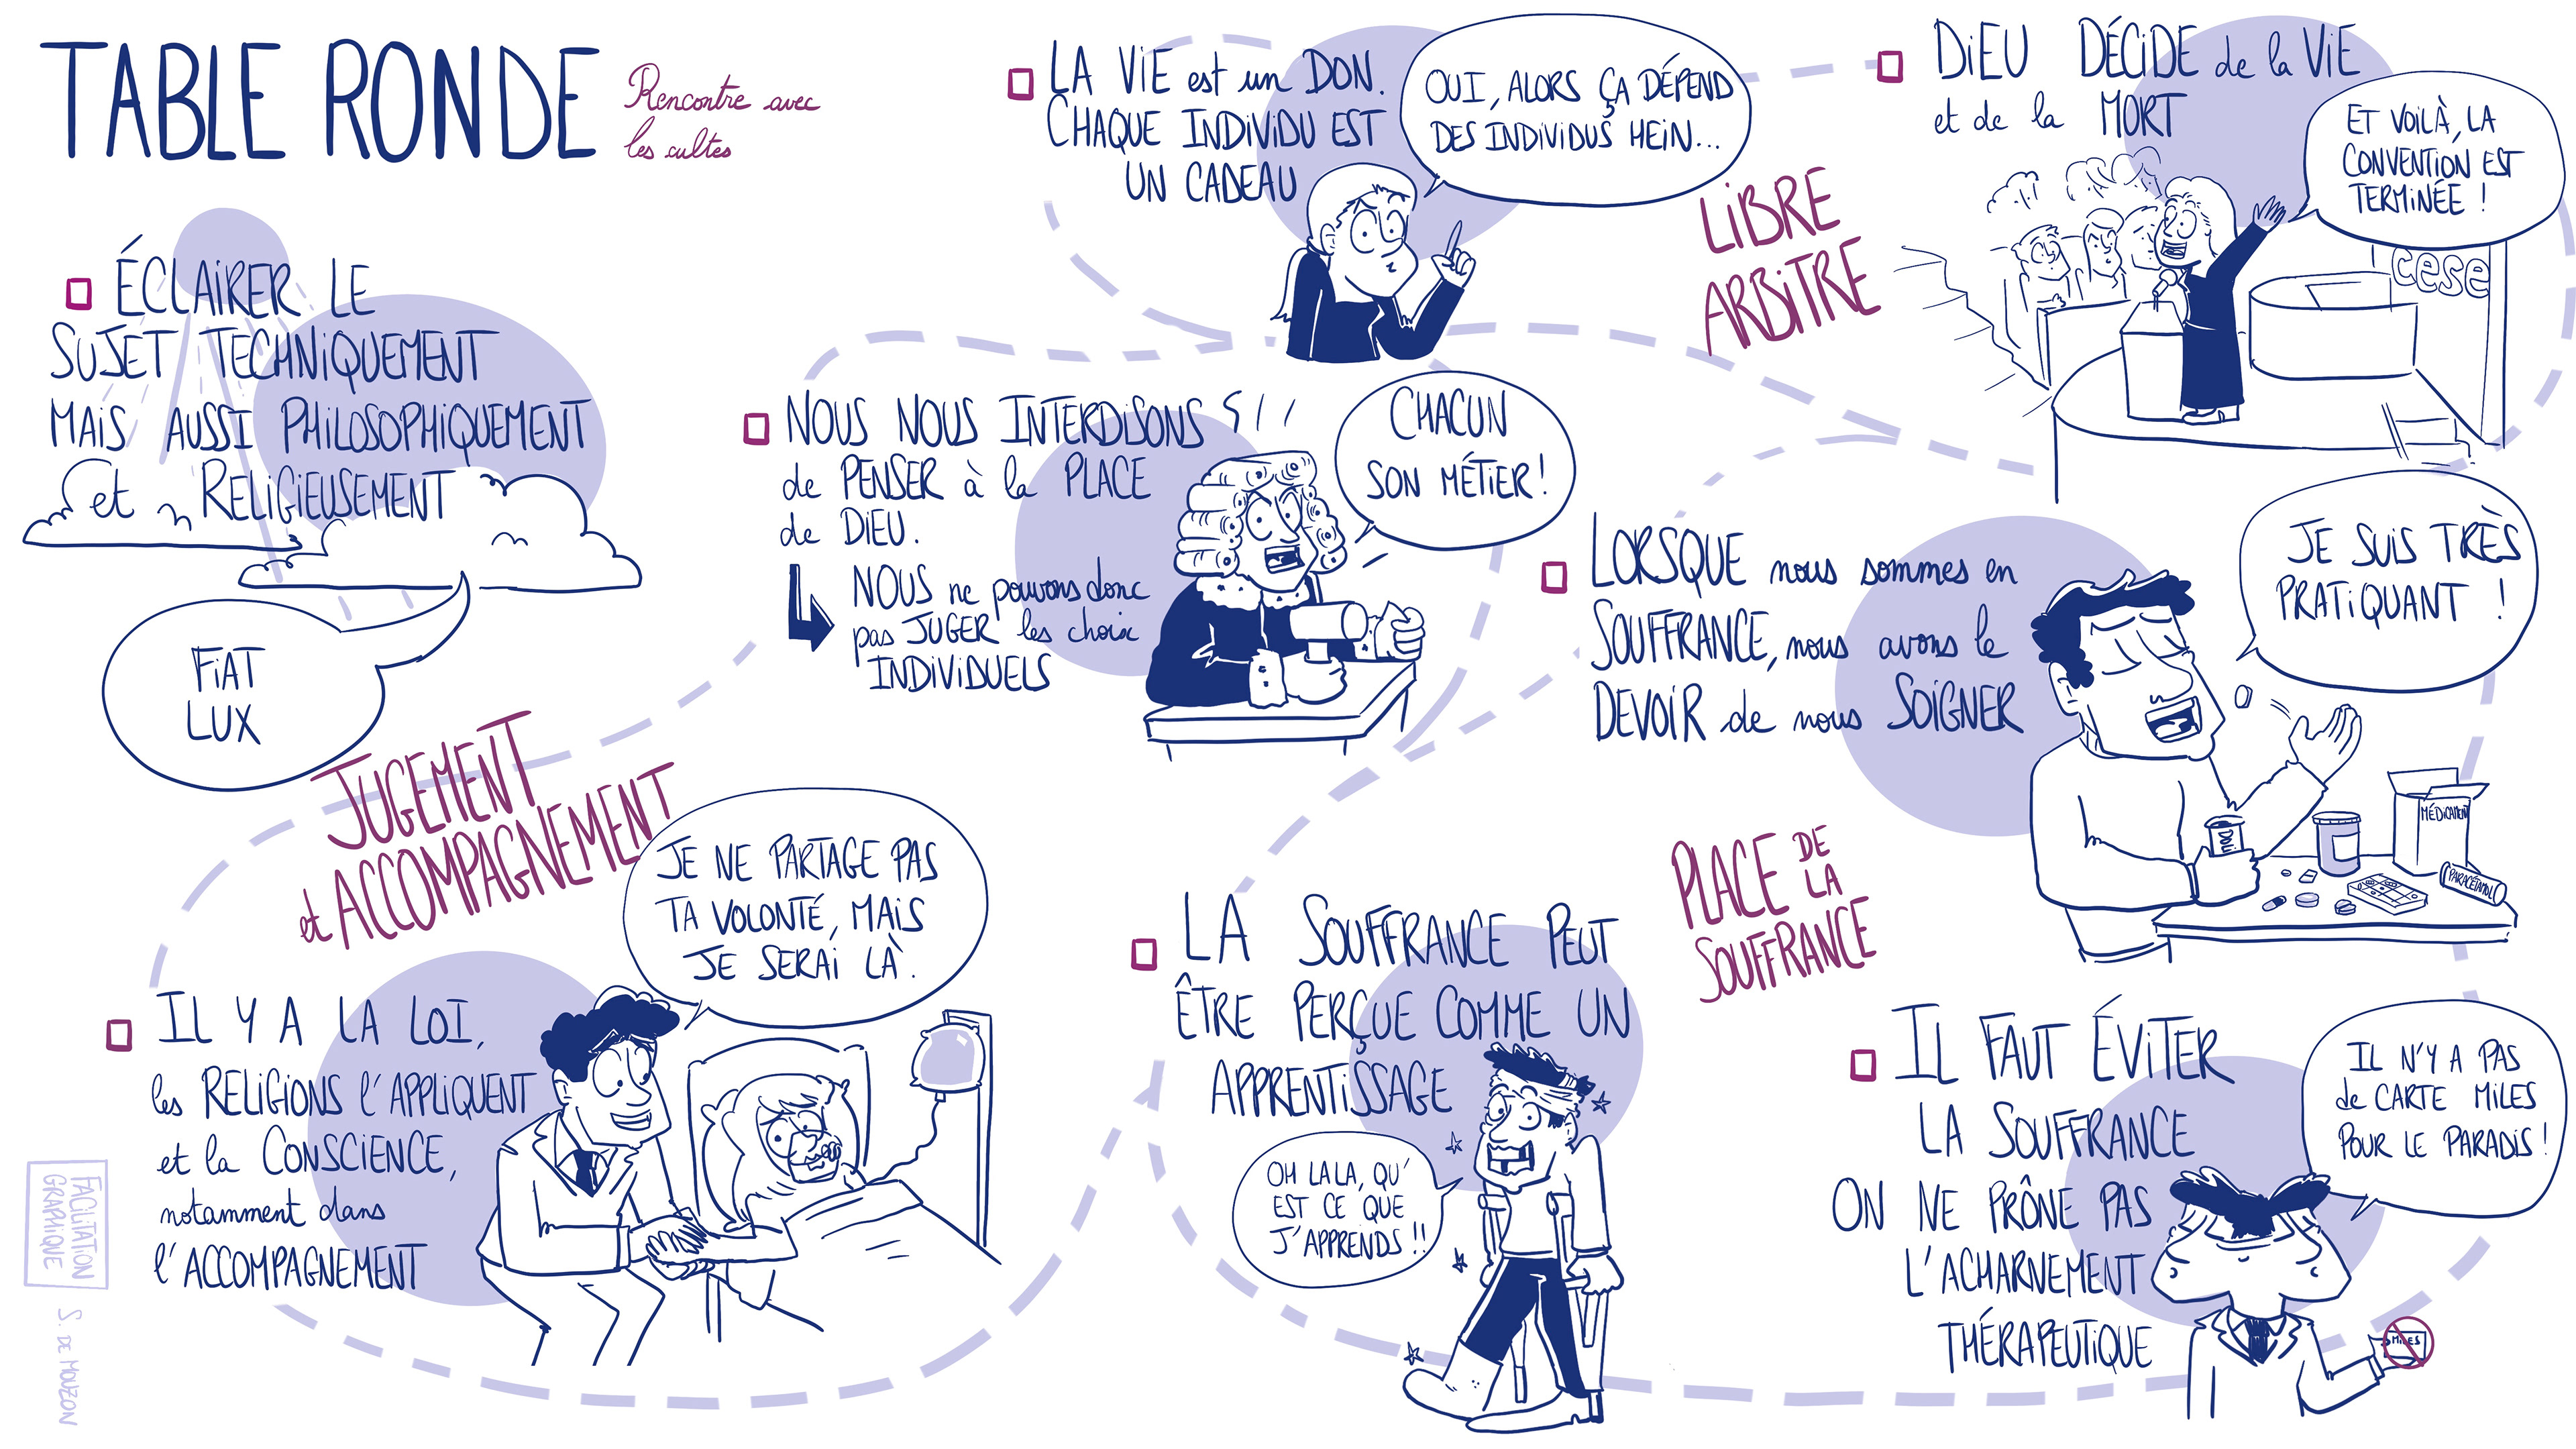 TABLE RONDE
Rencontre avec
les cultes
ÉCLAIRER LE
SUJET TECHNIQUEMENT
MAIS AUSSI PHILOSOPHIQUEMENT
et RELIGIEUSEMENT
FIAT
LUX
LA VIE est un DON.
CHAQUE INDIVIDU EST
UN CADEAU
OUI, ALORS ÇA DÉPEND
DES INDIVIDUS HEIN...
LIBRE
ARBITRE
DIEU DÉCIDE de la VIE
et de la MORT
ET VOILÀ, LA
CONVENTION EST
TERMINÉE !
cese
NOUS NOUS INTERDISONS
de PENSER à la PLACE
de DIEU.
NOUS ne pouvons donc
pas JUGER les choix
INDIVIDUELS
CHACUN
SON MÉTIER !
LORSQUE nous sommes en
SOUFFRANCE, nous avons le
DEVOIR de nous SOIGNER
JE SUIS TRÈS
PRATIQUANT !
MÉDICAMENT
PARACÉTAMOL
JUGEMENT
et ACCOMPAGNEMENT
JE NE PARTAGE PAS
TA VOLONTÉ, MAIS
JE SERAI LÀ.
IL Y A LA LOI,
les RELIGIONS l'APPLIQUENT
et la CONSCIENCE,
notamment dans
l'ACCOMPAGNEMENT
PLACE DE
LA
SOUFFRANCE
LA SOUFFRANCE PEUT
ÊTRE PERÇUE COMME UN
APPRENTISSAGE
OH LALA, QU'
EST CE QUE
J'APPRENDS !!
IL FAUT ÉVITER
LA SOUFFRANCE
ON NE PRÔNE PAS
L'ACHARNEMENT
THÉRAPEUTIQUE
IL N'Y A PAS
de CARTE MILES
POUR LE PARADIS !
MILES
FACILITATION
GRAPHIQUE
S. DE MOUZON